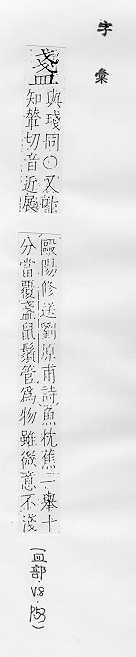 字彙
盞 與琖同○又雖
知輦切音近展
歐陽修送劉原甫詩魚枕蕉一舉十
分當覆盞鼠鬚管爲物雖微意不淺
(皿部.V8.P53)